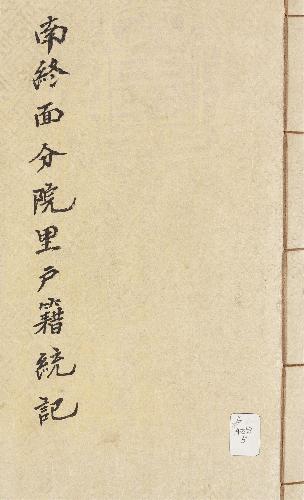 南終面分院里戶籍統記